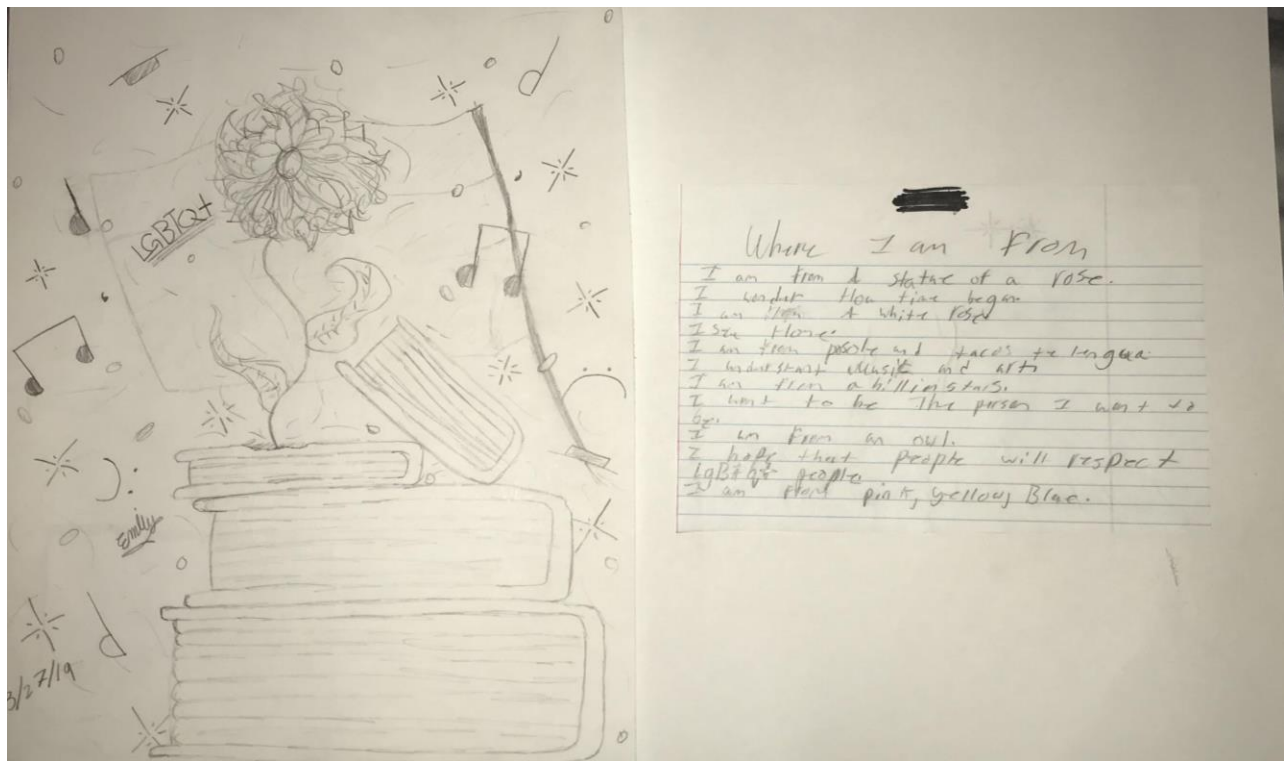 LGBTQ+
Emily
3/27/19
Where I am From
I am from A statue of a rose.
I wonder How time began
I am from A white rose
I see Hope.
I am from posole and tacos te lengua.
I understant Music and art.
I am from a billion stars.
I want to be The person I want to
be.
I am From an owl.
I hope that people will respect
LgBtq+ people.
I am from pink, yellow, Blue.